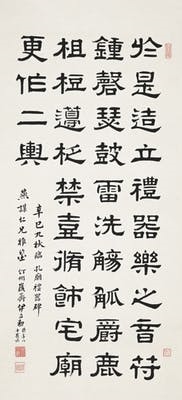 於是造立禮器樂之音符
鍾磬瑟鼓雷洗觴觚爵鹿
柤梪籩柉禁壺脩飾宅廟
更作二輿
辛巳九秋臨孔廟禮器碑
燕謀仁兄雅鑒 汀州峻齋伊立勳